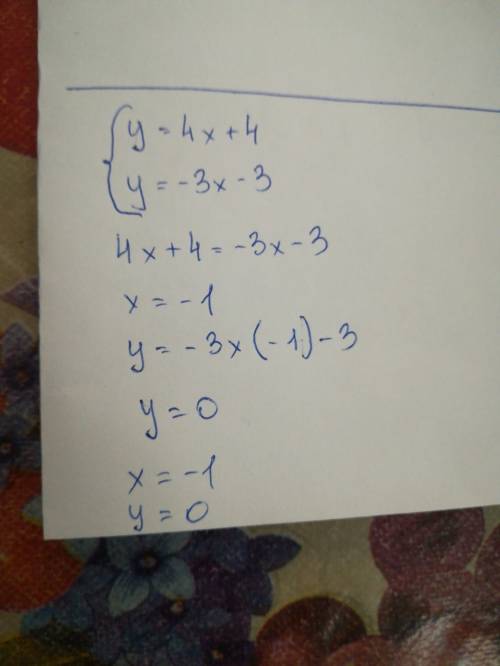 { y = 4x + 4
y = -3x - 3
4x + 4 = -3x - 3
x = -1
y = -3x(-1) - 3
y = 0
x = -1
y = 0